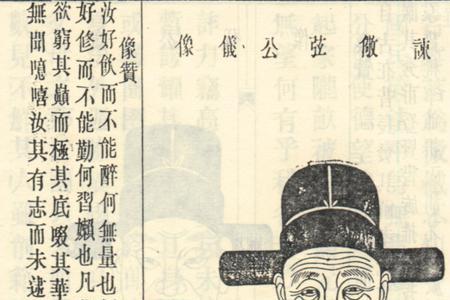 諫儆弦公儀像
像贊
汝好飲而不能醉何無量也
好修而不能勤何習嬾也凡
欲窮其巔而極其底啜其華
無聞噫嘻汝其有志而未逮